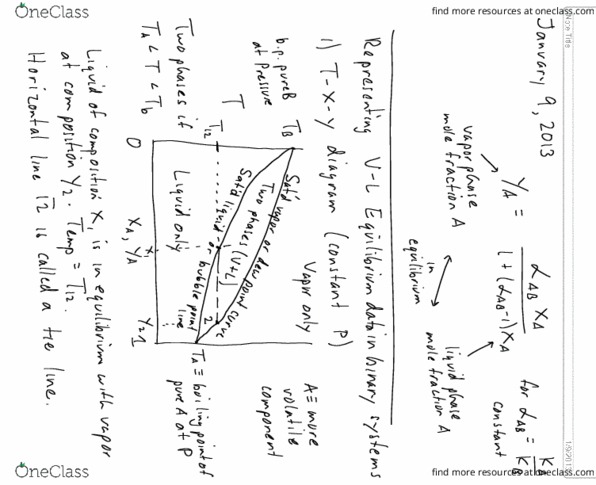 OneClass
find more resources at oneclass.com
Note Title
January 9, 2013
yA = αAB xA / 1 + (αAB - 1) xA
for αAB = KA / KB
constant
vapor phase
mole fraction A
in
equilibrium
liquid phase
mole fraction A
Representing V-L Equilibrium data in binary systems
1) T-x-y diagram (constant P)
A ≡ more
volatile
component
b.p. pure B
at Pressure
TB
Vapor only
Sat'd vapor or dew point curve
Two phases (V+L)
Sat'd liquid or bubble point
line
T
T12
Liquid only
1
2
TA ≡ boiling point of
pure A at P
0
xA, yA
x1
y2
1
Two phases if
TA < T < Tb
Liquid of composition x1 is in equilibrium with vapor
at composition y2. Temp = T12.
Horizontal line 12 is called a tie line.
OneClass
find more resources at oneclass.com